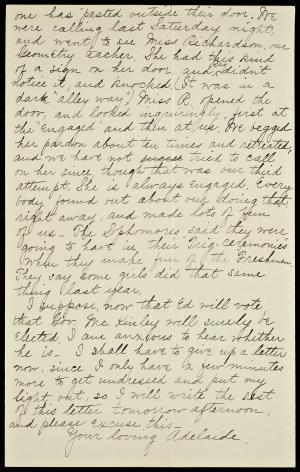 one has pasted outside their door. We
were calling last Saturday night,
and went to see Miss Richardson, our
Geometry teacher. She had this kind
of a sign on her door, and didn't
notice it, and knocked, (It was in a
dark alley way) Miss R. opened the
door, and looked inquiringly, first at
the 'Engaged' and then at us. We begged
her pardon about ten times and retreated,
and we have not tried to call
on her since though that was our third
attempt. She is always engaged. Every
body found out about our doing that
right away, and made lots of fun
of us – The Sophomores said they were
going to have in their Trig. ceremonies
when they make fun of the Freshmen.
They say some girls did that same
thing last year.
I suppose, now that Ed will vote,
that Gov. McKinley will surely be
elected, I am anxious to hear whether
he is. I shall have to give up a letter
now, since I only have a few minutes
more to get undressed and put my
light out, so I will write the rest
of this letter tomorrow afternoon,
and please excuse this –
Your loving Adelaide.